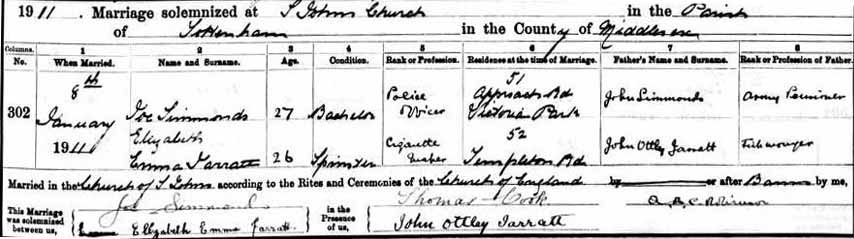 1911. Marriage solemnized at St Johns Church in the Parish
of Tottenham in the County of Middlesex
Columns. 1 2 3 4 5 6 7 8
No. When Married. Name and Surname. Age. Condition. Rank or Profession. Residence at the time of Marriage. Father's Name and Surname. Rank or Profession of Father.
302 8th January 1911 Joe Simmonds 27 Bachelor Police Officer 51 Approach Rd Victoria Park John Simmonds Army Pensioner
Elizabeth Emma Jarratt 26 Spinster Cigarette Maker 52 Templeton Rd John Ottley Jarratt Fishmonger
Married in the Church of St Johns according to the Rites and Ceremonies of the Church of England by or after Banns by me,
This Marriage was solemnized between us, Joe Simmond in the Presence of us, Thomas Cook A. B. C. Robinson
Elizabeth Emma Jarratt. John Ottley Jarratt